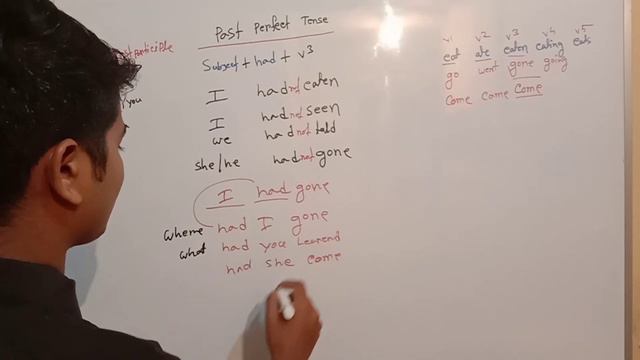 Past Perfect Tense
Subject + had + v3
I had not eaten
I had not seen
we had not told
she/he had not gone
I had gone
where had I gone
what had you Learend
had she come
participle
you
v1 v2 v3 v4 v5
eat ate eaten eating eats
go went gone going
come come come